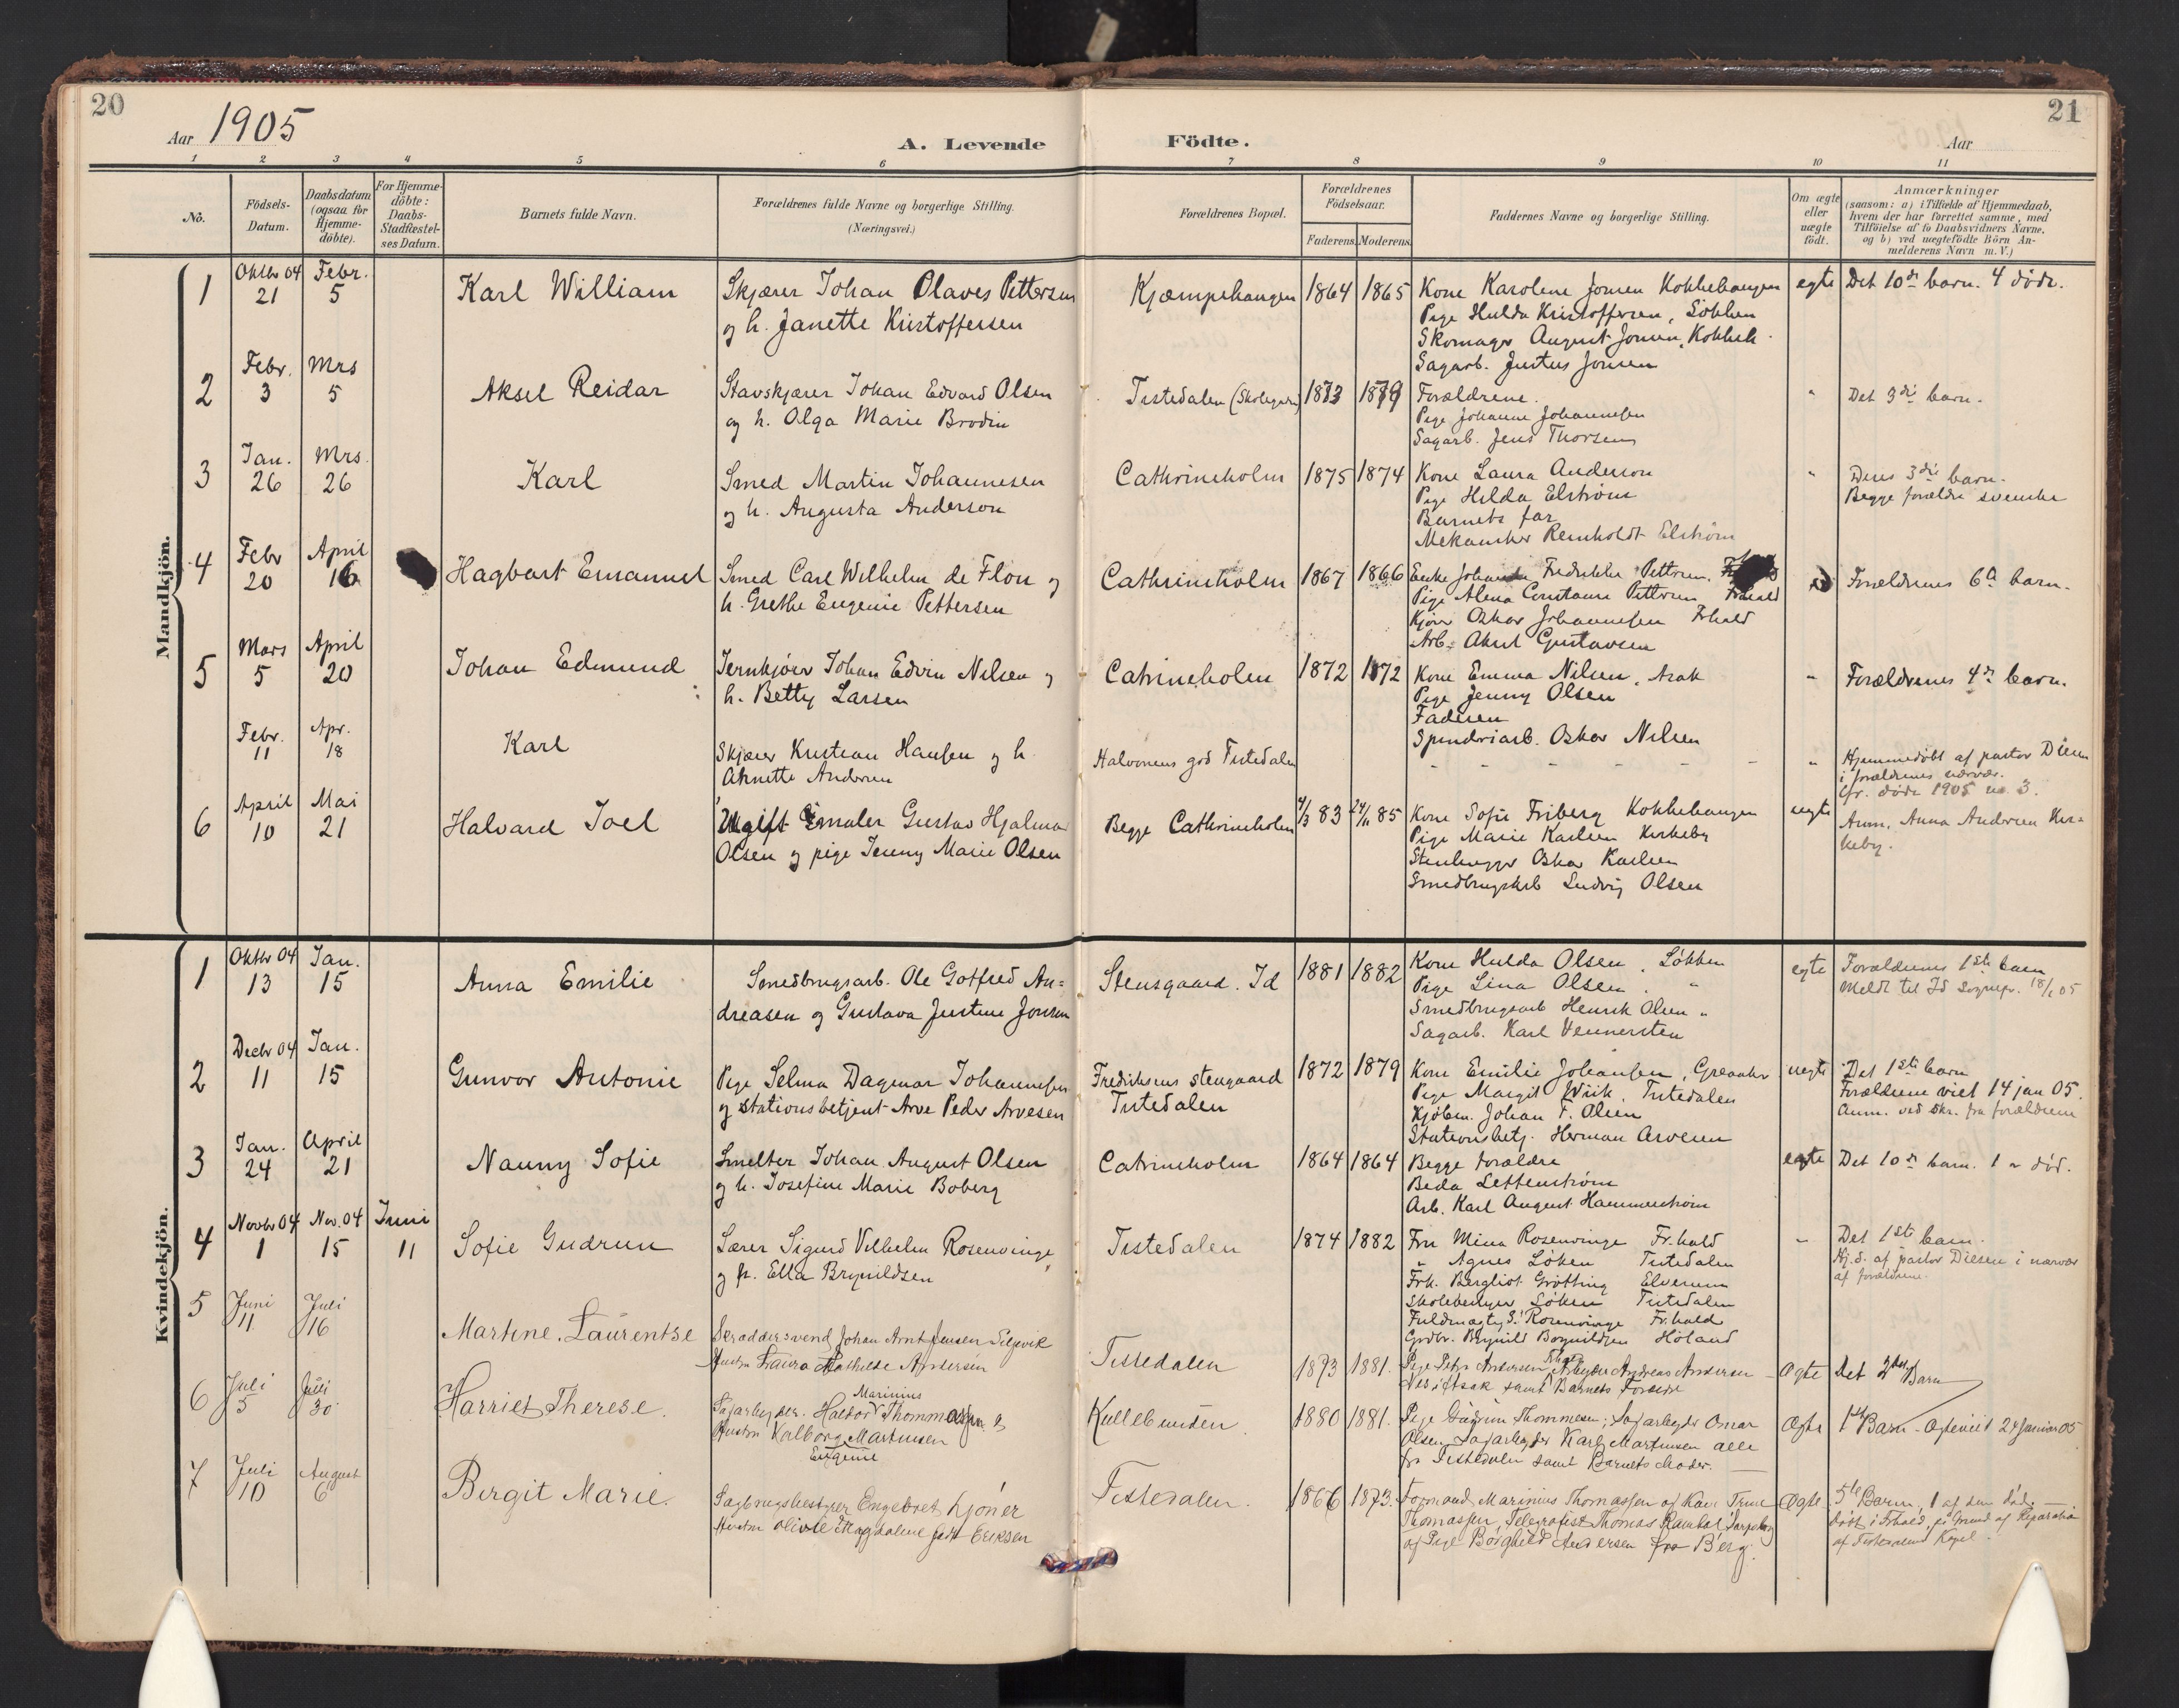 20
21
Aar 1905
A. Levende Födte.
Aar
1 2 3 4 5 6 7 8 9 10 11
No.
Födsels-Datum.
Daabsdatum (ogsaa for Hjemme-döbte).
For Hjemme-döbte: Daabs-Stadfæstel-ses Datum.
Barnets fulde Navn.
Forældrenes fulde Navne og borgerlige Stilling.
(Næringsvei.)
Forældrenes Bopæl.
Forældrenes Födselsaar.
Faderens. Moderens.
Faddernes Navne og borgerlige Stilling.
Om ægte eller uægte födt.
Anmærkninger
(saasom: a) i Tilfælde af Hjemmedaab,
hvem der har forrettet samme, med
Tilföielse af to Daabsvidners Navne,
og b) ved uægtefödte Börn An-
melderens Navn m. V.)
Mandkjön.
1 Oktbr 04 21 Febr. 5 Karl William
Skjærer Johan Olaves Pettersen
og h. Janette Kristoffersen
Kjæmpehaugen 1864 1865
Kone Karolene Jonsen Kokkehaugen
Pige Hulda Kristoffersen, Løkken
Skomager August Jonsen, Kokkeh.
Sagarb. Justus Jonsen
egte Det 10de barn. 4 døde.
2 Febr. 3 Mrs 5 Aksel Reidar
Stavskjærer Johan Edvard Olsen
og h. Olga Marie Brodin
Tistedalen 1873 1879
Forældrene.
Pige Johanne Johannesen
Sagarb. Jens Thorsen
" Det 3die barn.
3 Jan. 26 Mrs. 26 Karl
Smed Martin Johannesen
og h. Augusta Anderson
Cathrineholm 1875 1874
Kone Laura Anderson
Pige Hilda Elstrøm
Barnets far
Mekaniker Reinholdt Elstrøm
" Deres 3die barn.
Begge forældre svenske
4 Febr 20 April 16 Hagbart Emanuel
Smed Carl Wilhelm de Flon og
h. Grethe Eugenie Pettersen
Cathrineholm 1867 1866
Enke Johanne Fredrikke Pettersen.
Pige Alena Constance Pettersen Frhald
Kjører Oskar Johannesen Frhald
Arb. Aksel Gustavsen
Forældrenes 6te barn.
5 Mars 5 April 20 Johan Edmund
Jernkjører Johan Edvin Nilsen og
h. Betty Larsen
Catrineholm 1872 1872
Kone Emma Nilsen, Asak
Pige Jenny Olsen
Faderen
Spinderiarb. Oskar Nilsen
" Forældrenes 4de barn.
Febr. 11 Apr. 18 Karl
Skjærer Kristian Hansen og h.
Agnette Andersen
Halvorsens grd Tistedalen
" Hjemmedøbt af pastor Diesen
i forældrenes nærvær.
cfr. døde 1905 no. 3.
6 April 10 Mai 21 Halvard Joel
Ugift maler Gustav Hjalmar
Olsen og pige Jenny Marie Olsen
Begge Cathrineholm 4/3 83 24/11 85
Kone Sofie Friberg Kokkehaugen
Pige Marie Karlsen Kirkeby
Stenhugger Oskar Karlsen
Smedbrugsarb Ludvig Olsen
uegte Anm. Anna Andersen Kir-
keby.
Kvindekjön.
1 Oktbr 04 13 Jan. 15 Anna Emilie
Smedbrugsarb. Ole Gotfred An-
dreasen og Gustava Justine Jonsen
Stensgaard. Id 1881 1882
Kone Hulda Olsen. Løkken
Pige Lina Olsen. "
Smedbrugsarb Henrik Olsen "
Sagarb. Karl Vennersten
egte Forældrenes 1ste barn
Meldt til Id Sognepr. 18/1 05
2 Decbr 04 11 Jan. 15 Gunvor Antonie
Pige Selma Dagmar Johannesen
og stationsbetjent Arve Peder Arvesen
Fredriksens stengaard
Tistedalen 1872 1879
Kone Emilie Johansen, Greaaker
Pige Margit Wiik, Tistedalen
Kjøbm. Johan F. Olsen
Stationsbetj. Herman Arvesen
uegte Det 1ste barn
Forældrene viet 14 jan 05.
Anm. ved skr. fra forældrene
3 Jan. 24 April 21 Nanny Sofie
Smelter Johan August Olsen
og h. Josefine Marie Boberg
Catrineholm 1864 1864
Begge forældre
Beda Lettenstrøm
Arb. Karl August Hammerstrøm
egte Det 10de barn. 1 er død.
4 Novbr 04 1 Nov. 04 15 Juni 11 Sofie Gudrun
Lærer Sigurd Vilhelm Rosenvinge
og fr. Ella Brynildsen
Tistedalen 1874 1882
Fru Mina Rosenvinge Fr.hald
" Agnes Løken Tistedalen
Frk. Bergliot Grøtting Elverum
Skolebestyrer Løken Tistedalen
Fuldmægtig S. Rosenvinge Fr.hald
Grdbr. Brynild Brynildsen Høland
" Det 1ste barn.
Hj.d. af pastor Diesen i nærvær
af forældrene.
5 Juni 11 Juli 16 Martine Laurentse
Skræddersvend Johan Arnt Jensen
Hustru Laura Mathilde Andersen
Tistedalen 1873 1881.
Pige Petra Andersen Frhald Arbeider Andreas Andersen
samt Barnets Forældre
Ægte Det 2det Barn
6 Juli 5 Juli 30 Harriet Therese.
Sagarbejder. Haldor Marinius Thommassen &
Hustru Valborg Eugenie Martinsen
Kullebunden. 1880 1881.
Pige Gudrun Thommesen; Sagarbejder Omar
Olsen Sagarbejder Karl Martinsen alle
fra Tistedalen samt Barnets Moder.
Ægte 1st Barn - Ægteviet 24 Januar 05
7 Juli 10 August 6 Birgit Marie.
Sagbrugsbestyrer Engebret Kjøner
Hustru Olivie Magdalene født Eriksen
Tistedalen. 1866 1873.
Formand Marinius Thomassen og Kone Trine
Thomassen, Telegrafist Thomas Ramdal Sarpsborg
og Pige Borghild Andersen fra Berg.
Ægte 5te Barn, 1 af dem død.
døbt i Frhald, paa Grund af Reparation
af Tistedalens Kapel